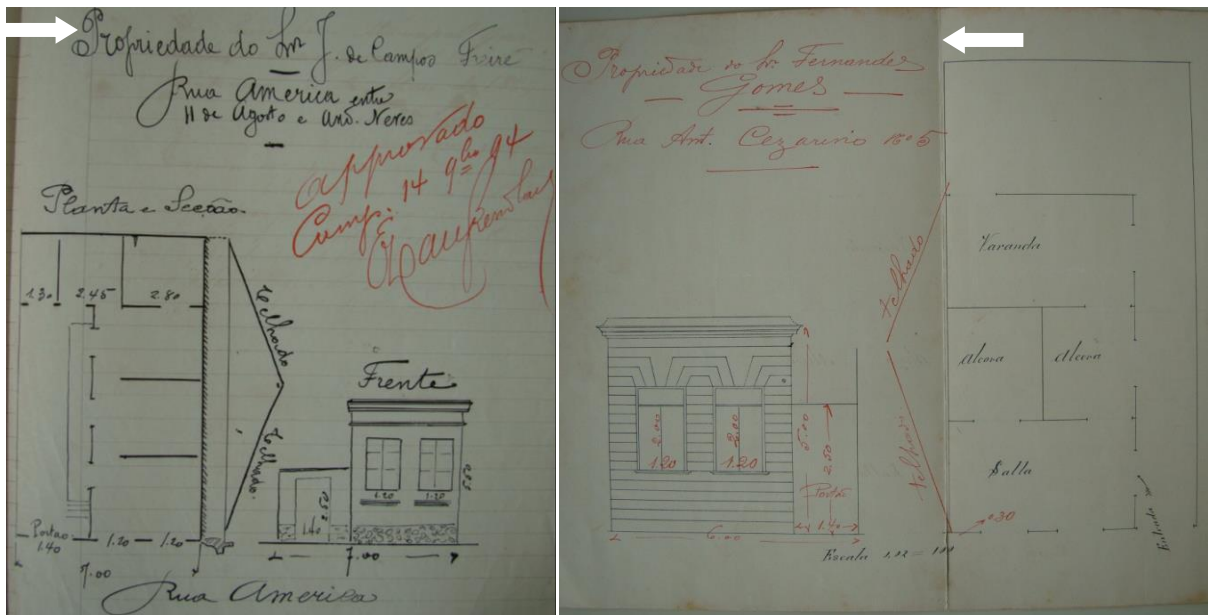 Propriedade do Snr J. de Campos Freire
Rua America entre
11 de Agosto e And. Neves
Approvado
Camp. 14 9bro 94
Planta e Secção
1.30
2.45
2.80
telhado
telhado
Frente
1.20
1.20
1.40
7.00
Portão
1.40
1.20
1.20
7.00
Rua America
Propriedade do Sr. Fernandes
Gomes
Rua Ant. Cezarino nº 5
telhado
telhado
Varanda
alcova
alcova
Salla
Entrada
030
2.00
1.20
2.00
1.20
5.00
2.50
Portão
1.40
6.00
Escala 1,00 = 100